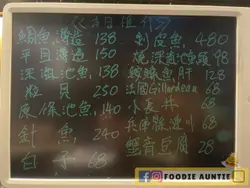 《本日推介》
鯛魚薄造 138
平目薄造 150
深海池魚 138
帆立貝 250
原條池魚 140
針魚 240
白子 68
剝皮魚 480
燒深海池魚頭 98
鮟鱇魚肝 128
法國Gillardeau 68
小長井 68
兵庫縣 68
蟹膏豆腐 28
FOODIE AUNTIE